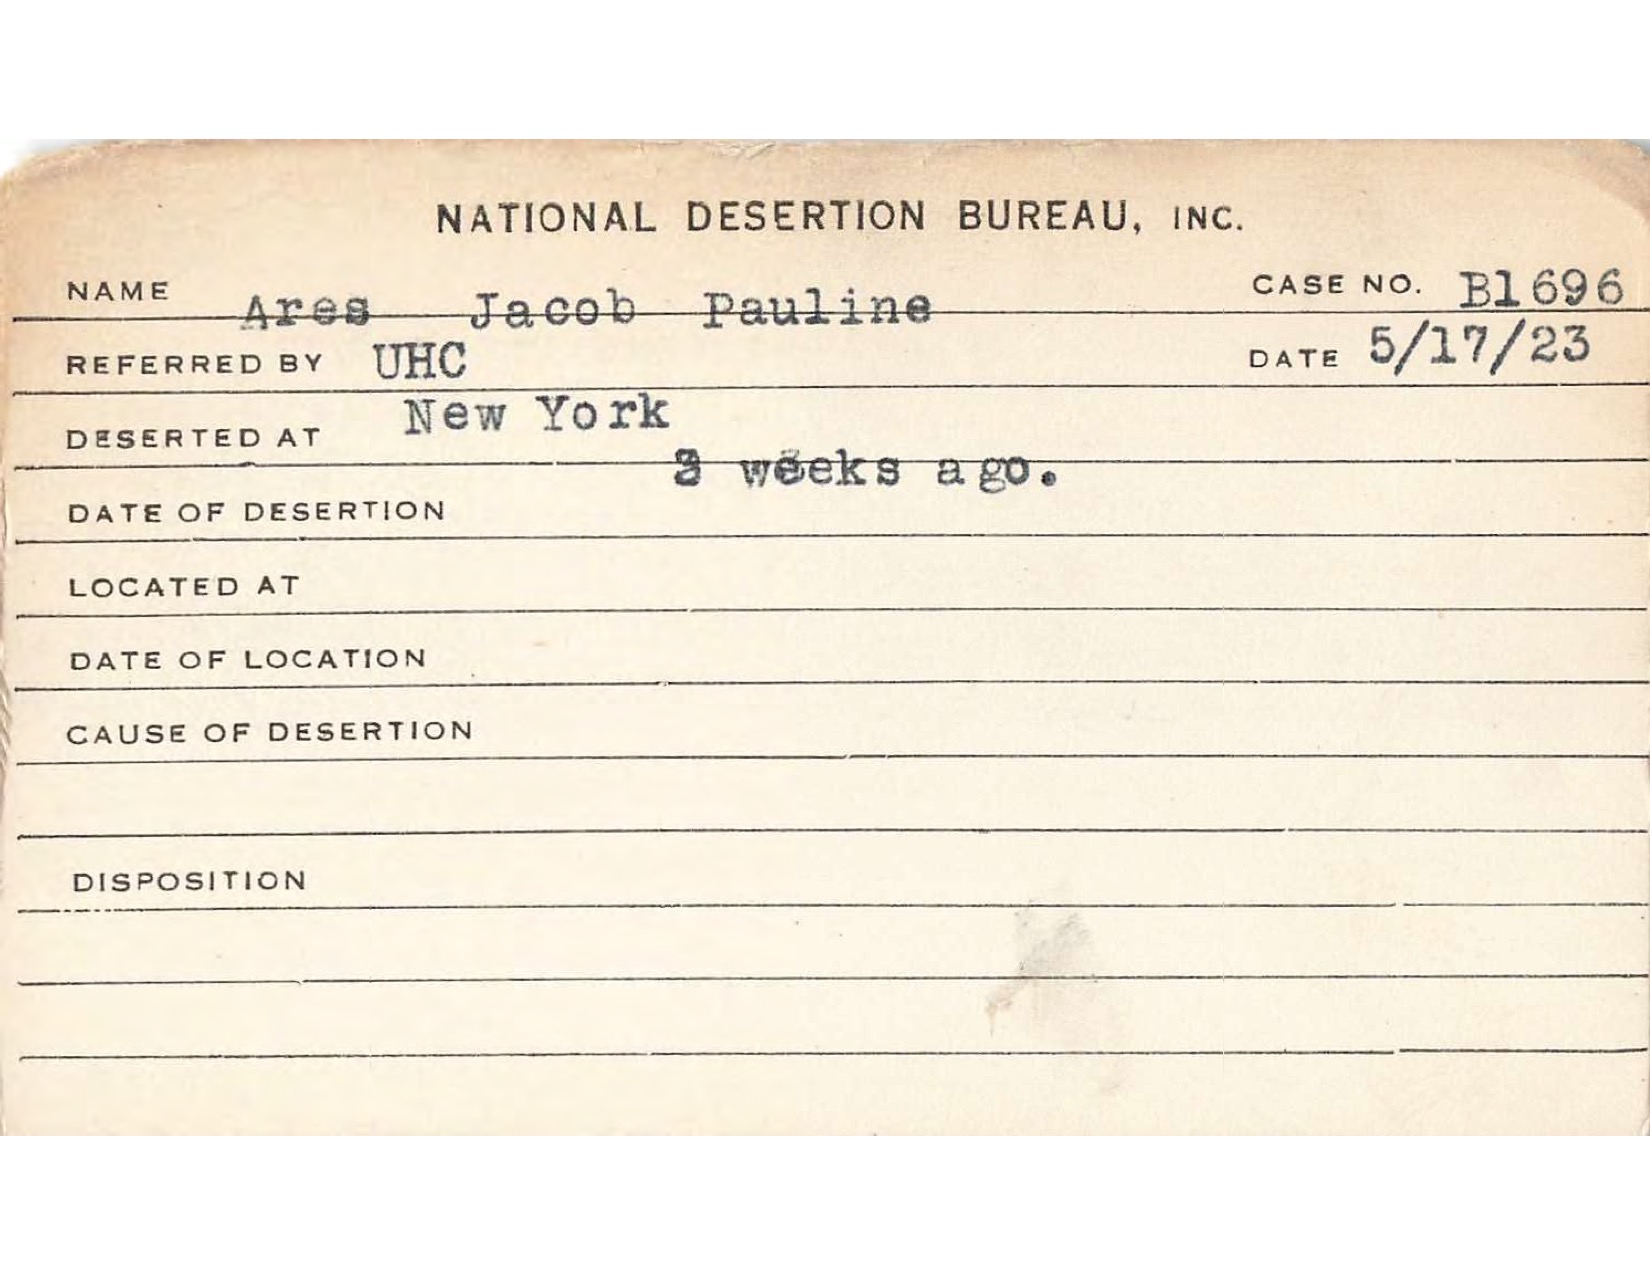 NATIONAL DESERTION BUREAU, INC.
NAME Ares Jacob Pauline CASE NO. B1696
REFERRED BY UHC DATE 5/17/23
DESERTED AT New York
weeks ago.
DATE OF DESERTION
LOCATED AT
DATE OF LOCATION
CAUSE OF DESERTION
DISPOSITION